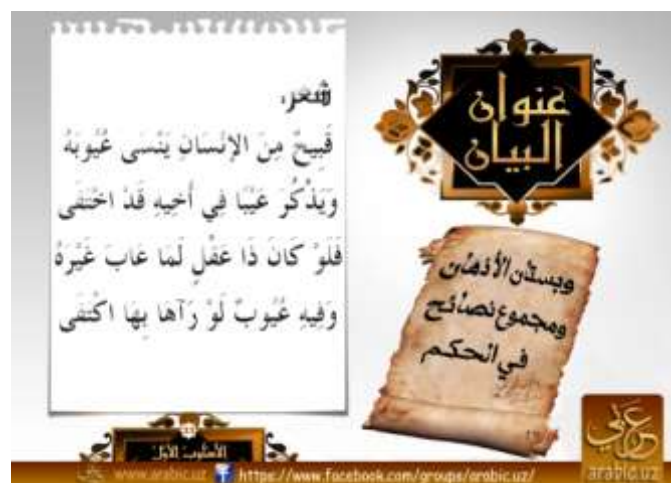 شعر،
قَبِيحٌ مِنَ الإِنْسَانِ يَنْسَى عُيُوبَهُ
وَيَذْكُرَ عَيْبًا فِي أَخِيهِ قَدْ اخْتَفَى
فَلَوْ كَانَ ذَا عَقْلٍ لَمَا عَابَ غَيْرَهُ
وَفِيهِ عُيُوبٌ لَوْ رَآهَا بِهَا اكْتَفَى
عنوان
البيان
وبستان الأذهان
ومجموع نصائح
في الحكم
الأسلوب الأول
www.arabic.uz https://www.facebook.com/groups/arabic.uz/
عربي
arabic.uz